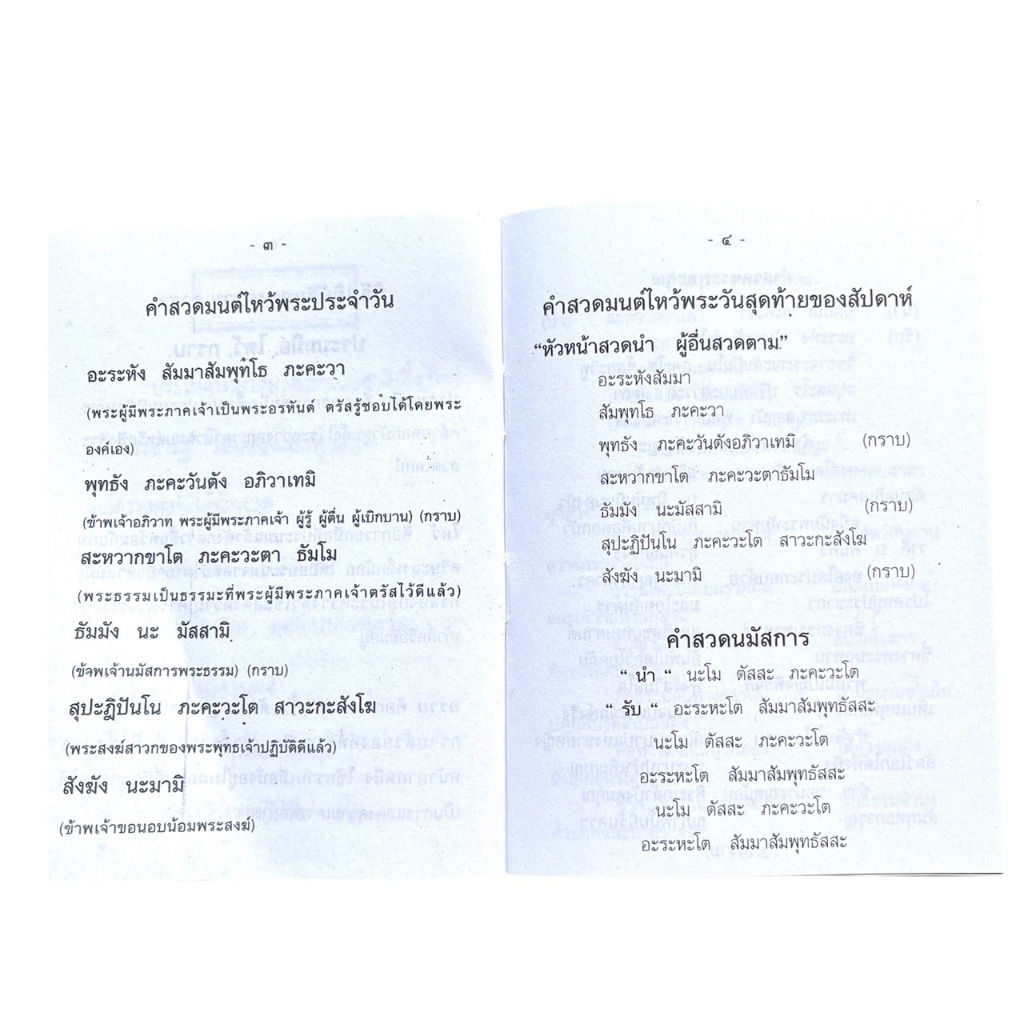 - ๓ -
คำสวดมนต์ไหว้พระประจำวัน
อะระหัง สัมมาสัมพุทโธ ภะคะวา
(พระผู้มีพระภาคเจ้าเป็นพระอรหันต์ ตรัสรู้ชอบได้โดยพระ
องค์เอง)
พุทธัง ภะคะวันตัง อภิวาเทมิ
(ข้าพเจ้าอภิวาท พระผู้มีพระภาคเจ้า ผู้รู้ ผู้ตื่น ผู้เบิกบาน) (กราบ)
สะหวากขาโต ภะคะวะตา ธัมโม
(พระธรรมเป็นธรรมะที่พระผู้มีพระภาคเจ้าตรัสไว้ดีแล้ว)
ธัมมัง นะ มัสสามิ
(ข้าพเจ้านมัสการพระธรรม) (กราบ)
สุปะฎิปันโน ภะคะวะโต สาวะกะสังโฆ
(พระสงฆ์สาวกของพระพุทธเจ้าปฏิบัติดีแล้ว)
สังฆัง นะมามิ
(ข้าพเจ้าขอนอบน้อมพระสงฆ์)
- ๔ -
คำสวดมนต์ไหว้พระวันสุดท้ายของสัปดาห์
“หัวหน้าสวดนำ ผู้อื่นสวดตาม”
อะระหังสัมมา
สัมพุทโธ ภะคะวา
พุทธัง ภะคะวันตังอภิวาเทมิ (กราบ)
สะหวากขาโต ภะคะวะตาธัมโม
ธัมมัง นะมัสสามิ (กราบ)
สุปะฏิปันโน ภะคะวะโต สาวะกะสังโฆ
สังฆัง นะมามิ (กราบ)
คำสวดนมัสการ
“ นำ “ นะโม ตัสสะ ภะคะวะโต
“ รับ “ อะระหะโต สัมมาสัมพุทธัสสะ
นะโม ตัสสะ ภะคะวะโต
อะระหะโต สัมมาสัมพุทธัสสะ
นะโม ตัสสะ ภะคะวะโต
อะระหะโต สัมมาสัมพุทธัสสะ